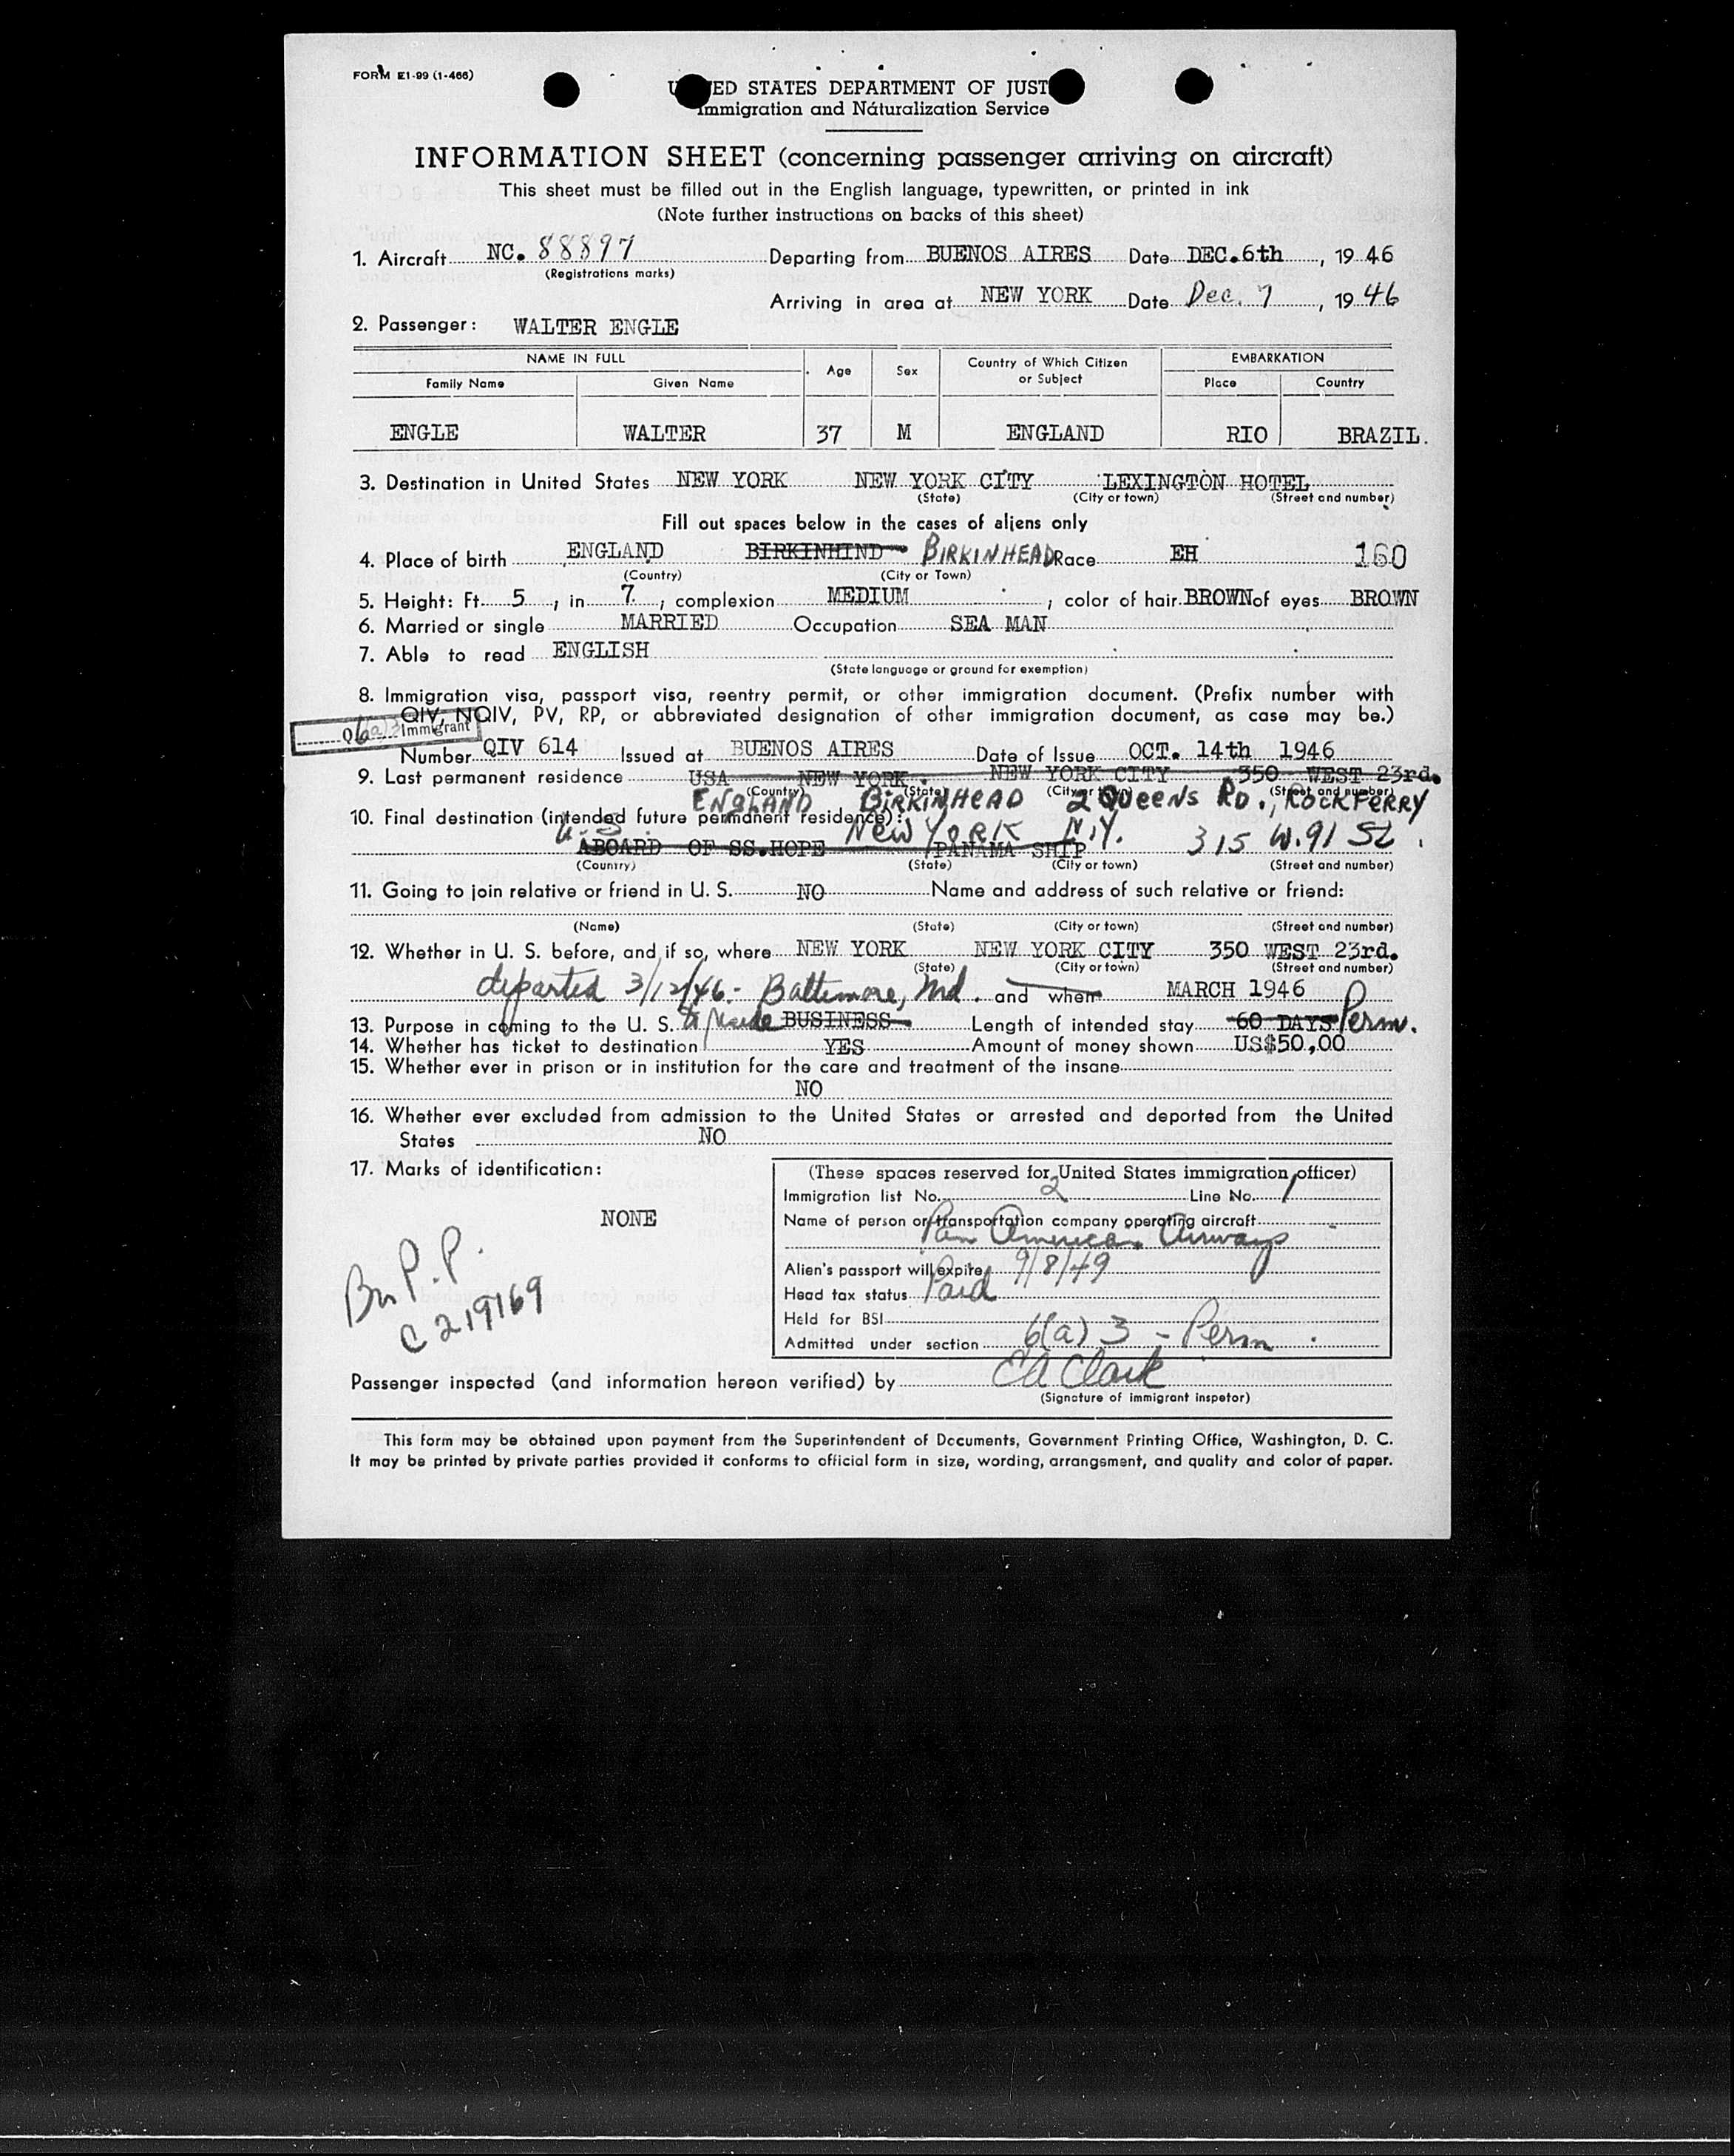 FORM E1-99 (1-466)
ED STATES DEPARTMENT OF JUST
Immigration and Naturalization Service
INFORMATION SHEET (concerning passenger arriving on aircraft)
This sheet must be filled out in the English language, typewritten, or printed in ink
(Note further instructions on backs of this sheet)
1. Aircraft NC. 88897 Departing from BUENOS AIRES Date DEC.6th, 19 46
(Registrations marks)
Arriving in area at NEW YORK Date Dec. 7, 19 46
2. Passenger: WALTER ENGLE
NAME IN FULL Age Sex Country of Which Citizen or Subject EMBARKATION
Family Name Given Name Place Country
ENGLE WALTER 37 M ENGLAND RIO BRAZIL.
3. Destination in United States NEW YORK NEW YORK CITY LEXINGTON HOTEL
(State) (City or town) (Street and number)
Fill out spaces below in the cases of aliens only
4. Place of birth ENGLAND BIRKINHIND BIRKINHEAD Race EH 160
(Country) (City or Town)
5. Height: Ft. 5, in 7, complexion MEDIUM; color of hair BROWN of eyes BROWN
6. Married or single MARRIED Occupation SEA MAN
7. Able to read ENGLISH
(State language or ground for exemption)
8. Immigration visa, passport visa, reentry permit, or other immigration document. (Prefix number with
QIV, NQIV, PV, RP, or abbreviated designation of other immigration document, as case may be.)
Q 6(a)3 Immigrant
Number QIV 614 Issued at BUENOS AIRES Date of Issue OCT. 14th 1946
9. Last permanent residence USA NEW YORK. NEW YORK CITY 350 WEST 23rd.
(Country) (State) (City or town) (Street and number)
ENGLAND BIRKINHEAD 2 QUEENS RD., ROCKFERRY
10. Final destination (intended future permanent residence):
U.S. NEW YORK N.Y. 315 W. 91 St.
ABOARD OF SS.HOPE PANAMA SHIP
(Country) (State) (City or town) (Street and number)
11. Going to join relative or friend in U. S. NO Name and address of such relative or friend:
(Name) (State) (City or town) (Street and number)
12. Whether in U. S. before, and if so, where NEW YORK NEW YORK CITY 350 WEST 23rd.
(State) (City or town) (Street and number)
departed 3/12/46 - Baltimore, Md. and when MARCH 1946
13. Purpose in coming to the U. S. to reside BUSINESS Length of intended stay 60 DAYS Perm.
14. Whether has ticket to destination YES Amount of money shown US$50,00
15. Whether ever in prison or in institution for the care and treatment of the insane
NO
16. Whether ever excluded from admission to the United States or arrested and deported from the United
States NO
17. Marks of identification:
NONE
Br P.P.
C 219169
(These spaces reserved for United States immigration officer)
Immigration list No. 2 Line No. 1
Name of person or transportation company operating aircraft
Pan American Airways
Alien's passport will expire 9/8/49
Head tax status Paid
Held for BSI
Admitted under section 6(a) 3 - Perm.
Passenger inspected (and information hereon verified) by EA Clark
(Signature of immigrant inspetor)
This form may be obtained upon payment from the Superintendent of Documents, Government Printing Office, Washington, D. C.
It may be printed by private parties provided it conforms to official form in size, wording, arrangement, and quality and color of paper.